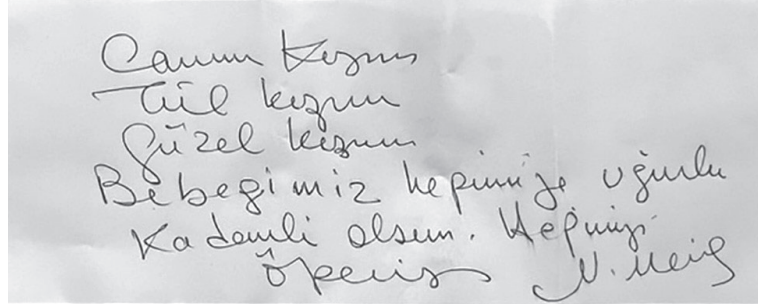 Canım Kızım
Tül kızım
Güzel kızım
Bebeğimiz hepimize uğurlu
Kademli olsun. Hepinizi
Öperiz N.